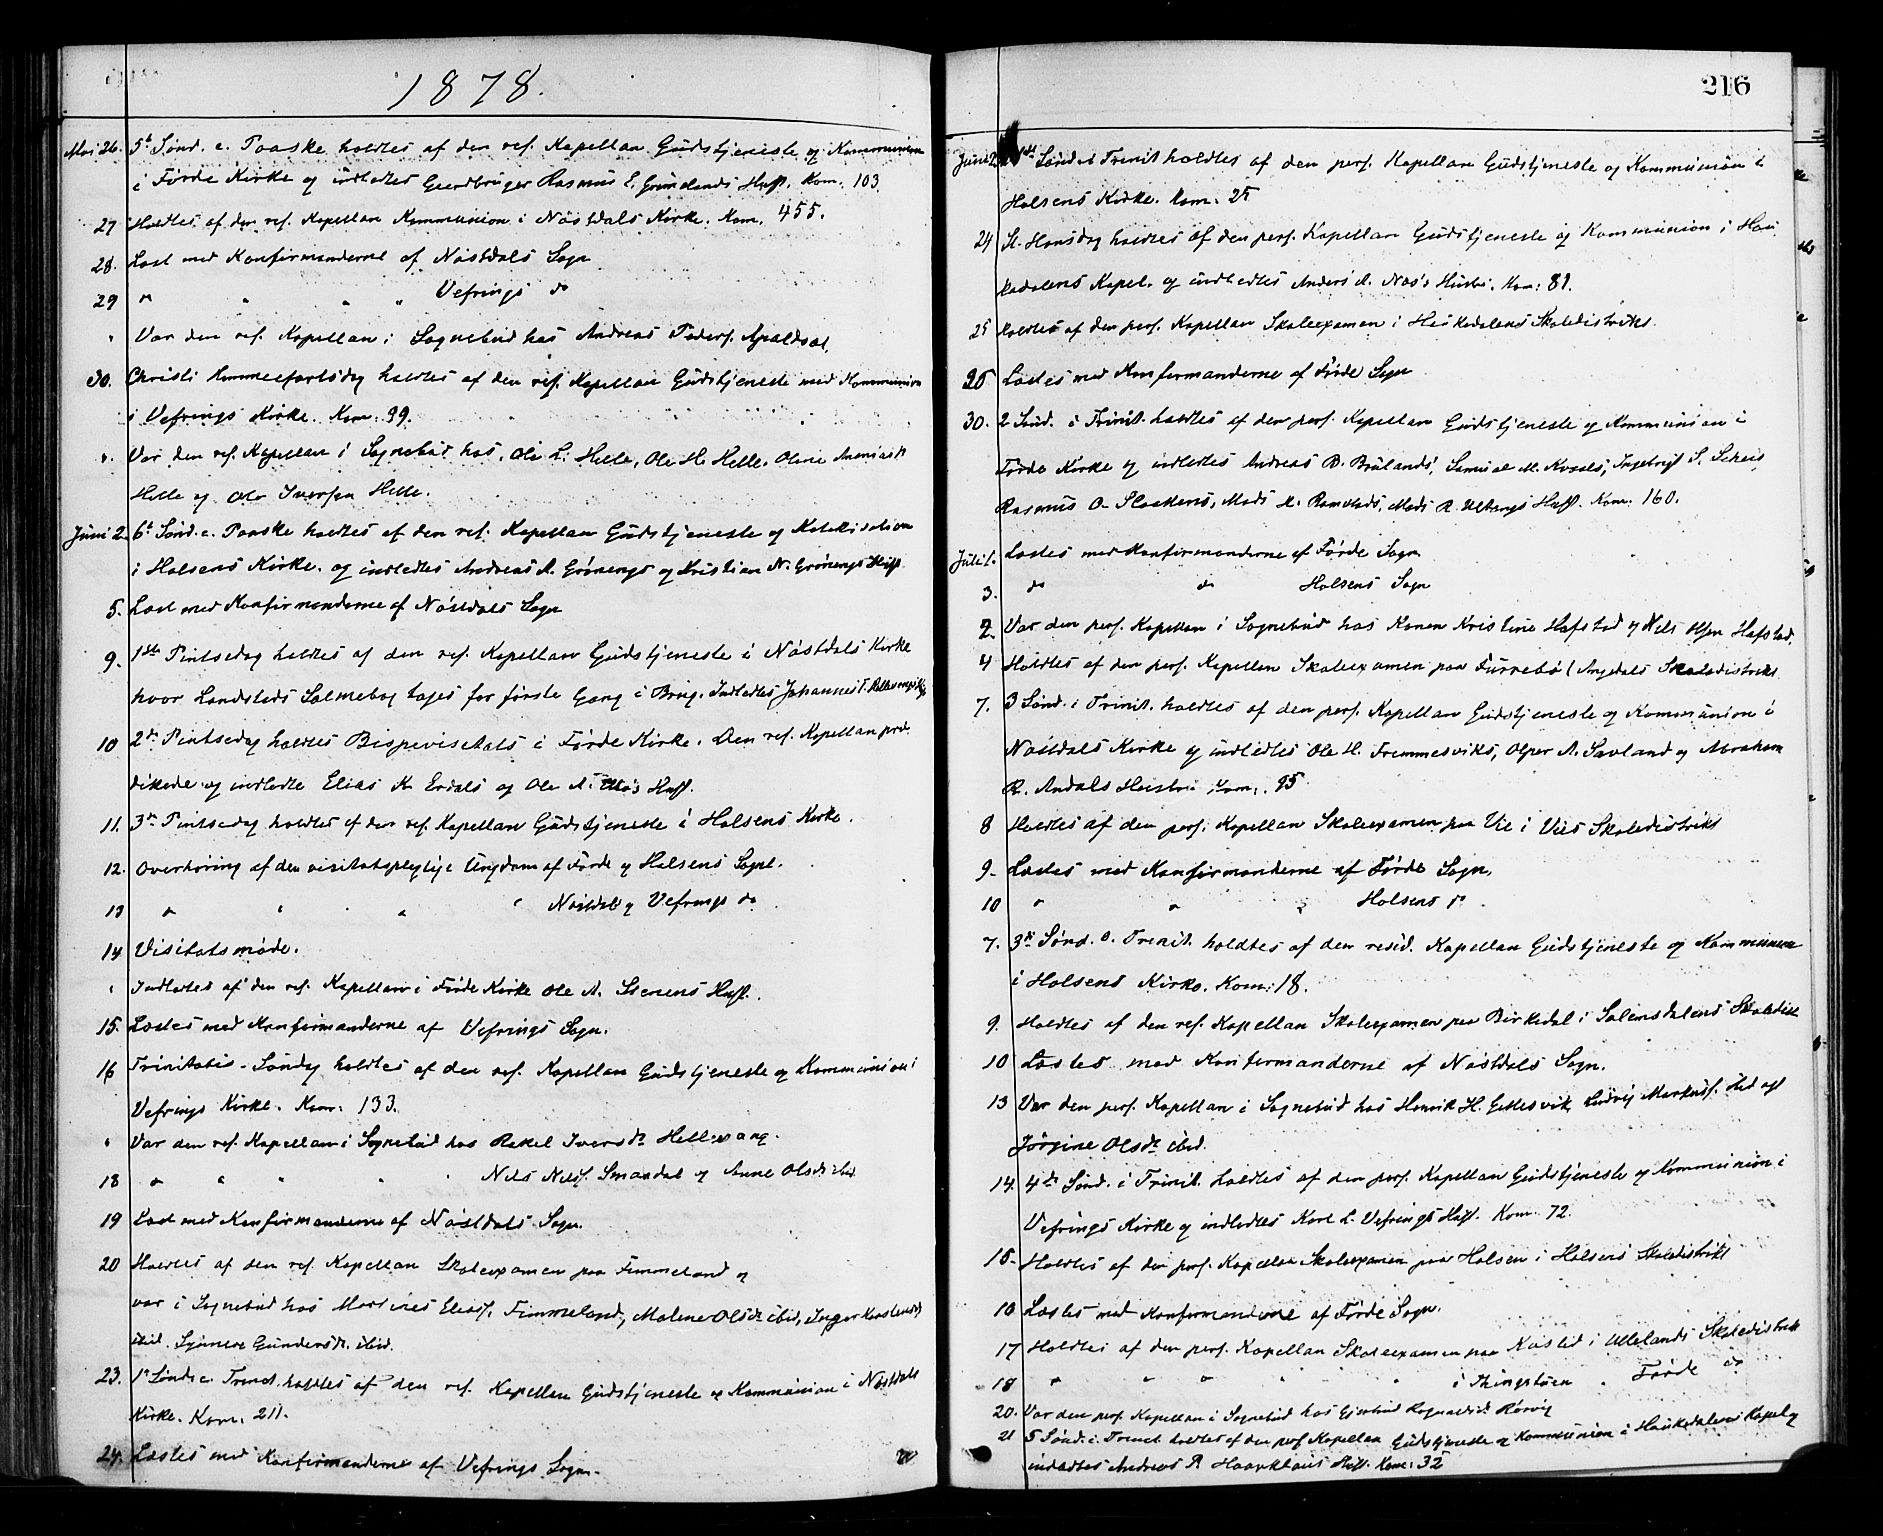 1878.
Mai 26. 5t Sönd. e. Paaske holdtes af den res. Kapellan Gudstjeneste og Kommunion
i Förde Kirke og indledtes Gaardbruger Rasmus E. Grimelands Hust. Kom. 103.
27 Holdtes af den res. Kapellan Kommunion i Nöstdals Kirke. Kom. 455.
28. Läst med Konfirmanderne af Nöstdals Sogn
29 " " " " Vefrings do
" Var den res. Kapellan i Sognebud hos Andreas Apaldsæt.
30. Christi Himmelfartsdag holdtes af den res. Kapellan Gudstjeneste med Kommunion
i Vefrings Kirke. Kom: 99.
" Var den res. Kapellan i Sognebud hos, Ole L. Helle, Ole H. Helle, Oline
Helle og Ole Iversen Helle.
Juni 2. 6t Sönd. e. Paaske holdtes af den res. Kapellan Gudstjeneste og Katekisation
i Holsens Kirke. og indledtes Andreas A. Grönengs og Kristian N. Grönengs Hust.
5. Läst med Konfirmanderne af Nöstdals Sogn
9. 1ste Pintsedag holdtes af den res. Kapellan Gudstjeneste i Nöstdals Kirke
hvor Landstads Salmebog toges for förste Gang i Brug. Indledtes Johannes T.
10 2den Pintsedag holdtes Bispevisitats i Förde Kirke. Den res. Kapellan præ-
dikede og indledte Elias K. Erdals og Ole A. Hust.
11. 3die Pintsedag holdtes af den res. Kapellan Gudstjeneste i Holsens Kirke.
12. Overhöring af den visitatspligtige Ungdom af Förde og Holsens Sogne.
13 " " " " Nöstdals og Vefrings do
14 Visitatsmöde.
" Indledtes af den res. Kapellan i Förde Kirke Ole A. Hust.
15. Læstes med Konfirmanderne af Vefrings Sogn.
16 Trinitatis-Söndag holdtes af den res. Kapellan Gudstjeneste og Kommunion i
Vefrings Kirke. Kom: 133.
" Var den res. Kapellan i Sognebud hos Rakel Iversdr. Hellevang.
18 " " " " " Nils Nilss. Smaadal og Anne Olsdr. ibid
19 Läst med Konfirmanderne af Nöstdals Sogn.
20 Holdtes af den res. Kapellan Skoleexamen paa Fimmeland og
var i Sognebud hos Martines Eliass. Fimmeland, Malene Olsdr. ibid, Inger
ibid. Synneve Gundersdr. ibid.
23. 1e Sönd. e. Trinit. holdtes af den res. Kapellan Gudstjeneste og Kommunion i Nöstdals
Kirke. Kom. 211.
24. Læstes med Konfirmanderne af Vefrings Sogn.
216
Juni 23 1ste Sönd. e. Trinit. holdtes af den pers. Kapellan Gudstjeneste og Kommunion i
Holsens Kirke. Kom: 25
24 St. Hansdag holdtes af den pers. Kapellan Gudstjeneste og Kommunion i Hau-
kedalens Kapel. og indledtes Anders A. Näs's Hustru. Kom: 81.
25 Holdtes af den pers. Kapellan Skoleexamen i Haukedalens Skoledistrikt.
26 Læstes med Konfirmanderne af Förde Sogn
30. 2 Sönd. e. Trinit. holdtes af den pers. Kapellan Gudstjeneste og Kommunion i
Förde Kirke og indledtes Andreas B. Brulands, Samuel M. Kvaals, S.
Rasmus O. Mads R. Hust. Kom: 160.
Juli 1. Læstes med Konfirmanderne af Förde Sogn
3. do do Holsens Sogn
2. Var den pers. Kapellan i Sognebud hos Konen Kristine Hafstad og Nils Olsen Hafstad.
4 Holdtes af den pers. Kapellan Skoleexamen paa Furrebö (Angedals Skoledistrikt.
7. 3 Sönd. e. Trinit. holdtes af den pers. Kapellan Gudstjeneste og Kommunion i
Nöstdals Kirke og indledtes Ole H. Fremmesviks, A. Savland og Abraham
R. Andals Hustru Kom: 95
8 Holdtes af den pers. Kapellan Skoleexamen paa Vie i Vies Skoledistrikt
9. Læstes med Konfirmanderne af Förde Sogn.
10 " " " Holsens do.
7. 3die Sönd. e. Trinit. holdtes af den resid. Kapellan Gudstjeneste og Kommunion
i Holsens Kirke. Kom: 18.
9. Holdtes af den res. Kapellan Skoleexamen paa Birkedal i Solemsdalens Skoledist.
10 Læstes med Konfirmanderne af Nöstdals Sogn.
13 Var den pers. Kapellan i Sognebud hos Henrik H. Ludvig Markuss.
Jörgine Olsdr. ibid.
14. 4de Sönd. e. Trinit. holdtes af den pers. Kapellan Gudstjeneste og Kommunion i
Vefrings Kirke og indledtes Karl L. Vefrings Hust. Kom: 72.
15. Holdtes af den pers. Kapellan Skoleexamen paa Holsen i Holsens Skoledistrikt
16 Læstes med Konfirmanderne af Förde Sogn.
17 Holdtes af den pers. Kapellan Skoleexamen paa i Ullelands Skoledistrikt
18 " " " " " i Thingstuen " Förde do
20. Var den pers. Kapellan i Sognebud hos Rörvig
21 5 Sönd. e. Trinit. holdtes af den pers. Kapellan Gudstjeneste og Kommunion i Haukedalens Kapel og
indledtes Andreas R Haarklaus Hust. Kom: 32